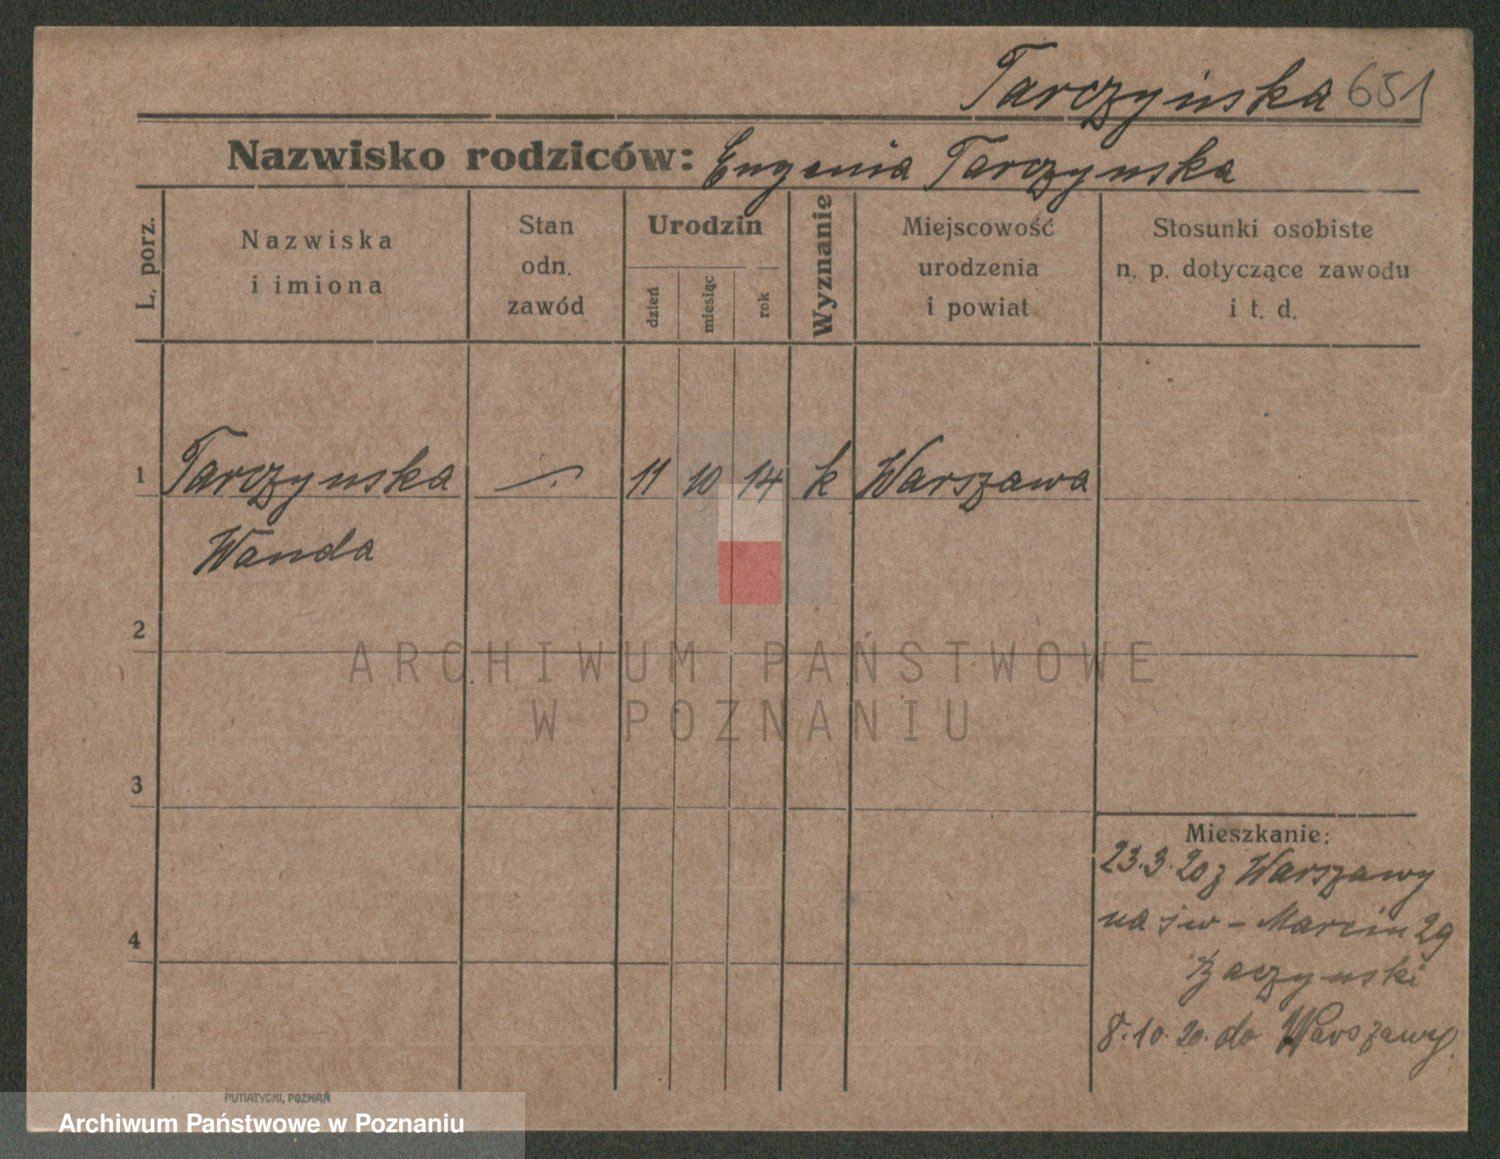 Tarczyńska 651
Nazwisko rodziców: Eugenia Tarczynska
L. porz.
Nazwiska
i imiona
Stan
odn.
zawód
Urodzin
dzień
miesiąc
rok
Wyznanie
Miejscowość
urodzenia
i powiat
Stosunki osobiste
n. p. dotyczące zawodu
i t. d.
1 Tarczynska 11 10 14 k Warszawa
Wanda
2
ARCHIWUM PAŃSTWOWE
W POZNANIU
3
Mieszkanie:
23.3.20 z Warszawy
na św - Marcin 29
8.10.20. do Warszawy
4
PUTIATYCKI, POZNAŃ
Archiwum Państwowe w Poznaniu